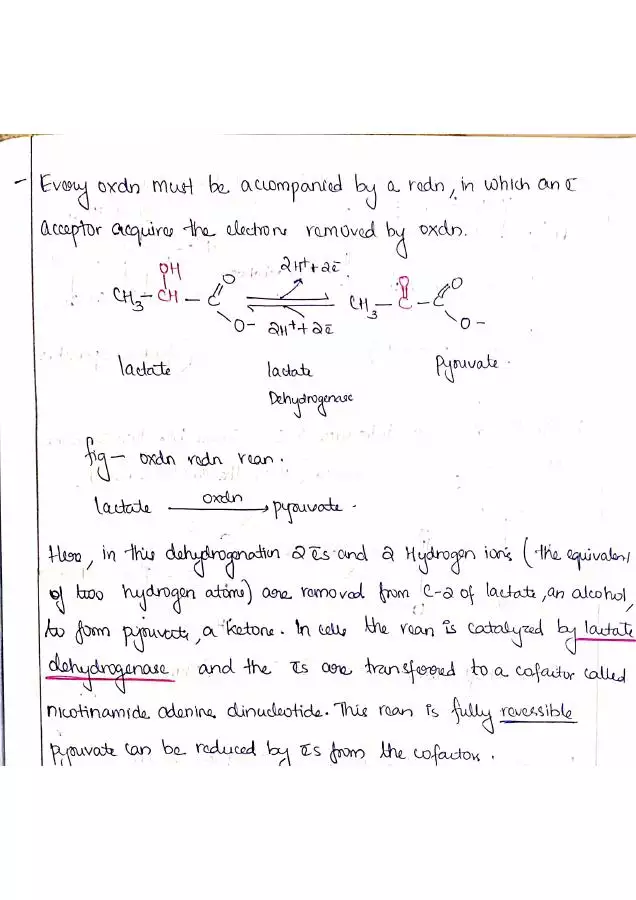 - Every oxdn must be accompanied by a redn, in which an ē
acceptor acquires the electrons removed by oxdn.
OH
2H⁺ + 2ē
O
O
O
CH₃ - CH - C
CH₃ - C - C
O-
2H⁺ + 2ē
O-
lactate
lactate
Pyruvate.
Dehydrogenase
fig - oxdn redn rean.
lactate oxdn → pyruvate.
Here, in this dehydrogenation 2 ēs and 2 Hydrogen ions (the equivalent
of two hydrogen atoms) are removed from C-2 of lactate, an alcohol,
to form pyruvate, a ketone. In cells the rean is catalyzed by lactate
dehydrogenase and the ēs are transferred to a cofactor called
nicotinamide adenine dinucleotide. This rean is fully reversible
pyruvate can be reduced by ēs from the cofactor.